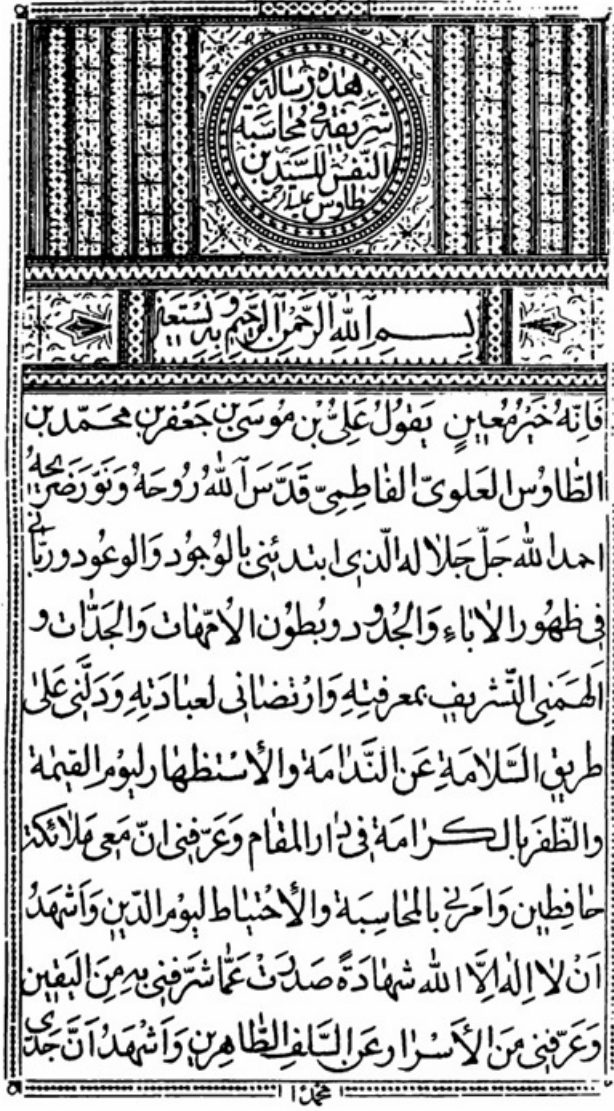 هذه رسالة
شريفة في محاسبة
النفس للسيد بن
طاوس عليه الرحمة
بِسْمِ اللهِ الرَّحْمٰنِ الرَّحِيْمِ وَبِهِ نَسْتَعِيْنُ
فَاِنَّهُ خَيْرُ مُعِينٍ يَقُولُ عَلِيُّ بْنُ مُوسَى بْنِ جَعْفَرِ بْنِ مُحَمَّدِ بْنِ
الطّاوُسِ العَلَوِىّ الفاطِمِىّ قَدَّسَ اللهُ رُوحَهُ وَنَوَّرَ ضَرِيحَهُ
احمد الله جَلَّ جَلاله الَّذِى ابتدئنى بالوُجُود وَالوعُود وربّانى
فى ظهُور الاباءِ وَالجُدُود وبُطُون الاُمّهات وَالجَدّات و
اَلهَمَنِى التّشريف بمعرفتِهِ وَارْتضانى لعبادَتِهِ وَدَلَّنى عَلى
طريق السَّلامَةِ عَنِ النَّدامَة والأسْتظهار ليَوْمِ القيٰمة
والظَّفَرَ بالكرامَة فى دارالمقام وَعَرّفنى انّ مَعى ملائكة
حٰافِظين وَامرنى بالمُحاسِبَة والأحْتياط ليَومِ الدّين وَاَشْهَدُ
اَنْ لا اِلٰهَ اِلَّا الله شهادَةً صَدرَتْ عَمّا شَرّفنى بِهِ مِنَ اليَقين
وَعَرّفنى مِنَ الأسْرار عَنِ السَّلَفِ الطّاهِرين وَاَشْهَدُ اَنَّ جَدّى